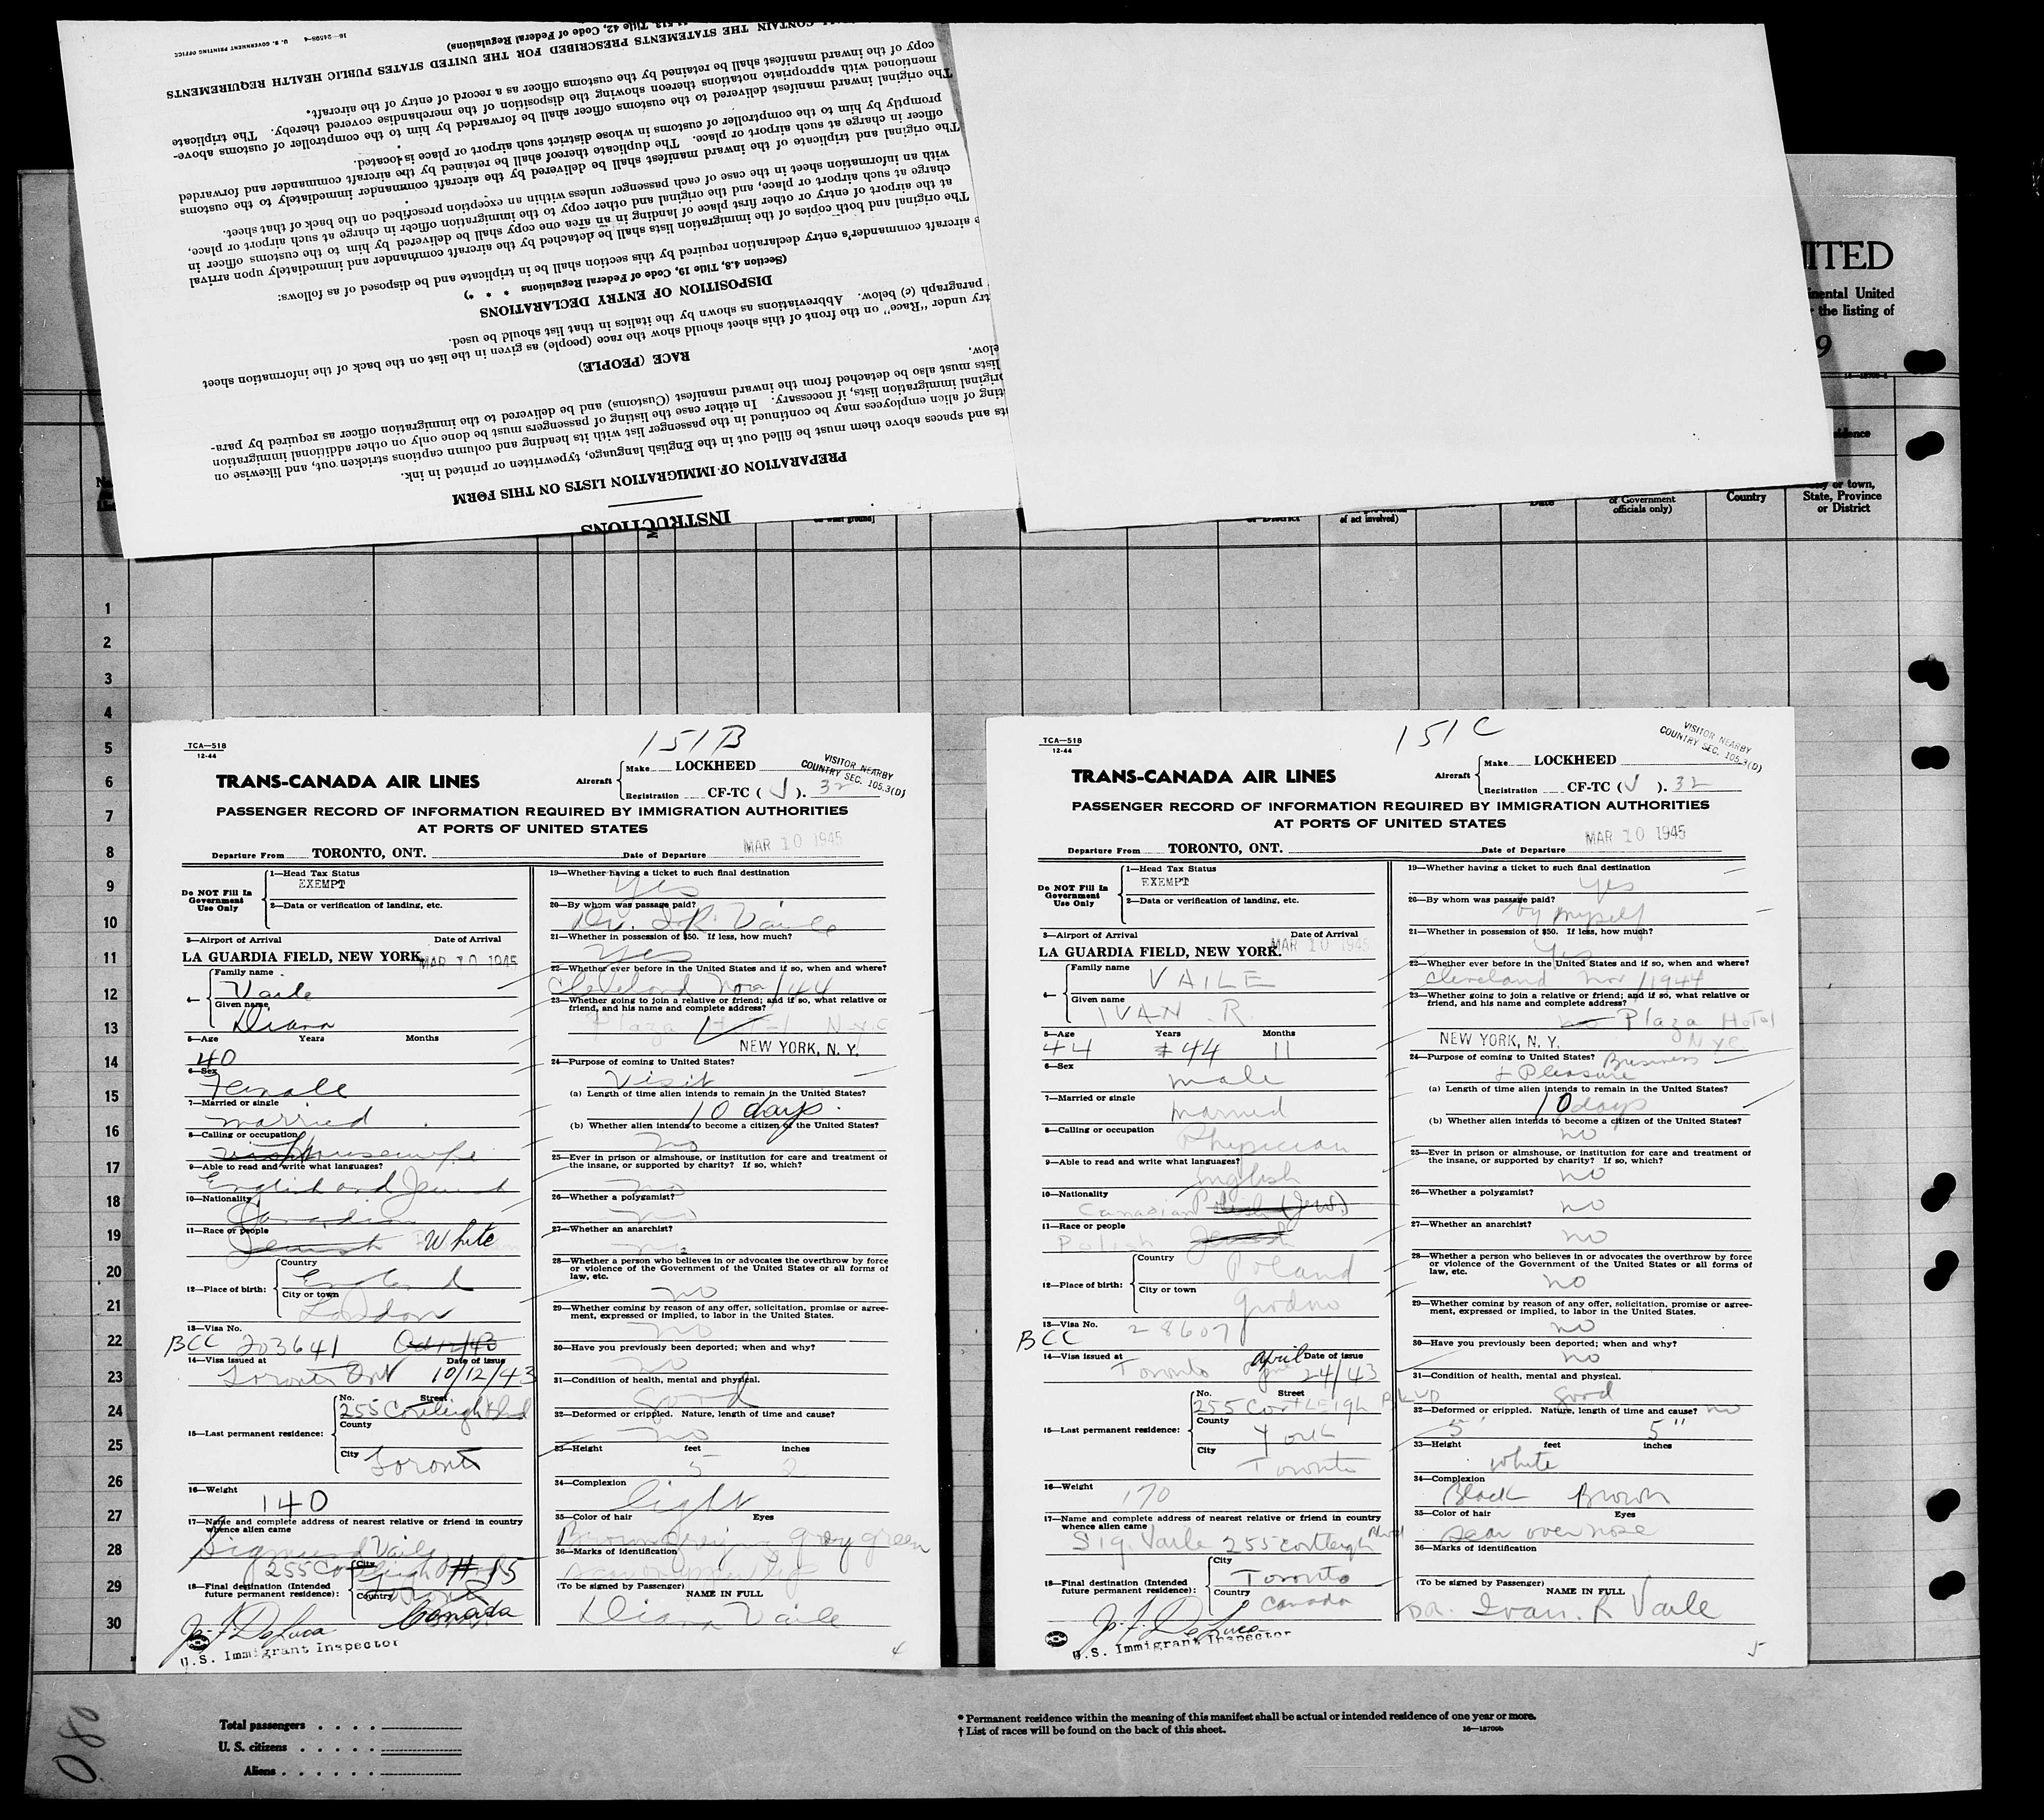 INSTRUCTIONS
PREPARATION OF IMMIGRATION LISTS ON THIS FORM
ts and spaces above them must be filled out in the English language, typewritten or printed in ink.
ting of alien employees may be continued in the passenger list with its heading and column captions stricken out, and likewise on
original immigration lists, if necessary. In either case the listing of passengers must be done only on other additional immigration
lists must also be detached from the inward manifest (Customs) and be delivered to the immigration officer as required by para-
elow.
RACE (PEOPLE)
try under "Race" on the front of this sheet should show the race (people) as given in the list on the back of the information sheet
paragraph (c) below. Abbreviations as shown by the italics in that list should be used.
DISPOSITION OF ENTRY DECLARATIONS
(Section 4.8, Title 19, Code of Federal Regulations * * *)
e aircraft commander's entry declaration required by this section shall be in triplicate and be disposed of as follows:
The original and both copies of the immigration lists shall be detached by the aircraft commander and immediately upon arrival
at the airport of entry or other first place of landing in an area one copy shall be delivered by him to the customs officer in
charge at such airport or place, and the original and other copy to the immigration officer in charge at such airport or place,
with an information sheet in the case of each passenger unless within an exception prescribed on the back of that sheet.
The original and triplicate of the inward manifest shall be delivered by the aircraft commander immediately to the customs
officer in charge at such airport or place. The duplicate thereof shall be retained by the aircraft commander and forwarded
promptly by him to the comptroller of customs in whose district such airport or place is located.
The original inward manifest delivered to the customs officer shall be forwarded by him to the comptroller of customs above-
mentioned with appropriate notations thereon showing the disposition of the merchandise covered thereby. The triplicate
copy of the inward manifest shall be retained by the customs officer as a record of entry of the aircraft.
CONTAIN THE STATEMENTS PRESCRIBED FOR THE UNITED STATES PUBLIC HEALTH REQUIREMENTS
Title 42, Code of Federal Regulations)
16—24598-4 U. S. GOVERNMENT PRINTING OFFICE
ITED
inental United
the listing of
9
idence
of Government
officials only)
Country
or town,
State, Province
or District
of act involved)
Date
1
2
3
4
5
6
7
8
9
10
11
12
13
14
15
16
17
18
19
20
21
22
23
24
25
26
27
28
29
30
151B
TCA—518
12-44
TRANS-CANADA AIR LINES
Aircraft
Make LOCKHEED
Registration CF-TC ( J ). 32
VISITOR NEARBY
COUNTRY SEC. 105.3(D)
PASSENGER RECORD OF INFORMATION REQUIRED BY IMMIGRATION AUTHORITIES
AT PORTS OF UNITED STATES
Departure From TORONTO, ONT. Date of Departure MAR 10 1945
Do NOT Fill In Government Use Only
1—Head Tax Status
EXEMPT
2—Data or verification of landing, etc.
3—Airport of Arrival Date of Arrival
LA GUARDIA FIELD, NEW YORK. MAR 10 1945
4— Family name Vaile
Given name Diana
5—Age Years Months
40
6—Sex
Female
7—Married or single
married
8—Calling or occupation
housewife
9—Able to read and write what languages?
English and Jewish
10—Nationality
Canadian
11—Race or people
Jewish White
12—Place of birth: Country England
City or town London
13—Visa No.
BCC 203641 Oct 12/43
14—Visa issued at Date of issue
Toronto Ont 10/12/43
15—Last permanent residence: No. Street
255 Cortleigh Blvd
County
City Toronto
16—Weight
140
17—Name and complete address of nearest relative or friend in country
whence alien came
Sigmund Vaile
255 Cortleigh
18—Final destination (Intended
future permanent residence): City
Country Canada
J. F. DeLuca
U.S. Immigrant Inspector
19—Whether having a ticket to such final destination
Yes
20—By whom was passage paid?
Dr. I. R. Vaile
21—Whether in possession of $50. If less, how much?
Yes
22—Whether ever before in the United States and if so, when and where?
Cleveland Nov/44
23—Whether going to join a relative or friend; and if so, what relative or
friend, and his name and complete address?
Plaza N.Y.C
NEW YORK, N. Y.
24—Purpose of coming to United States?
Visit
(a) Length of time alien intends to remain in the United States?
10 days.
(b) Whether alien intends to become a citizen of the United States?
no
25—Ever in prison or almshouse, or institution for care and treatment of
the insane, or supported by charity? If so, which?
no
26—Whether a polygamist?
no
27—Whether an anarchist?
no
28—Whether a person who believes in or advocates the overthrow by force
or violence of the Government of the United States or all forms of
law, etc.
no
29—Whether coming by reason of any offer, solicitation, promise or agree-
ment, expressed or implied, to labor in the United States.
no
30—Have you previously been deported; when and why?
no
31—Condition of health, mental and physical.
Good
32—Deformed or crippled. Nature, length of time and cause?
no
33—Height feet inches
5 2
34—Complexion
light
35—Color of hair Eyes
Brown grey green
36—Marks of identification
(To be signed by Passenger) NAME IN FULL
Diana Vaile
4
151C
TCA—518
12-44
TRANS-CANADA AIR LINES
Aircraft
Make LOCKHEED
Registration CF-TC ( J ). 32
VISITOR NEARBY
COUNTRY SEC. 105.3(D)
PASSENGER RECORD OF INFORMATION REQUIRED BY IMMIGRATION AUTHORITIES
AT PORTS OF UNITED STATES
Departure From TORONTO, ONT. Date of Departure MAR 10 1945
Do NOT Fill In Government Use Only
1—Head Tax Status
EXEMPT
2—Data or verification of landing, etc.
3—Airport of Arrival Date of Arrival
LA GUARDIA FIELD, NEW YORK. MAR 10 1945
4— Family name VAILE
Given name IVAN. R.
5—Age Years Months
44 44 11
6—Sex
male
7—Married or single
married
8—Calling or occupation
Physician
9—Able to read and write what languages?
English
10—Nationality
Canadian Polish (Jew.)
11—Race or people
Polish Jewish
12—Place of birth: Country Poland
City or town Grodno
13—Visa No.
BCC 28607
14—Visa issued at Date of issue
Toronto April 24/43
15—Last permanent residence: No. Street
255 Cortleigh BLVD
County York
City Toronto
16—Weight
170
17—Name and complete address of nearest relative or friend in country
whence alien came
Sig. Vaile 255 Cortleigh Blvd
18—Final destination (Intended
future permanent residence): City Toronto
Country Canada
J. F. DeLuca
U.S. Immigrant Inspector
19—Whether having a ticket to such final destination
Yes
20—By whom was passage paid?
by myself
21—Whether in possession of $50. If less, how much?
Yes
22—Whether ever before in the United States and if so, when and where?
Cleveland Nov/1944
23—Whether going to join a relative or friend; and if so, what relative or
friend, and his name and complete address?
no Plaza Hotel
NEW YORK, N. Y. NYC
24—Purpose of coming to United States? Business
+ Pleasure
(a) Length of time alien intends to remain in the United States?
10 days
(b) Whether alien intends to become a citizen of the United States?
no
25—Ever in prison or almshouse, or institution for care and treatment of
the insane, or supported by charity? If so, which?
no
26—Whether a polygamist?
no
27—Whether an anarchist?
no
28—Whether a person who believes in or advocates the overthrow by force
or violence of the Government of the United States or all forms of
law, etc.
no
29—Whether coming by reason of any offer, solicitation, promise or agree-
ment, expressed or implied, to labor in the United States.
no
30—Have you previously been deported; when and why?
no
31—Condition of health, mental and physical.
good
32—Deformed or crippled. Nature, length of time and cause? no
5' 5"
33—Height feet inches
White
34—Complexion
Black Brown
35—Color of hair Eyes
scar over nose
36—Marks of identification
(To be signed by Passenger) NAME IN FULL
Dr. Ivan. R Vaile
5
Total passengers
U. S. citizens
Aliens
* Permanent residence within the meaning of this manifest shall be actual or intended residence of one year or more.
† List of races will be found on the back of this sheet. 16—18709b
080